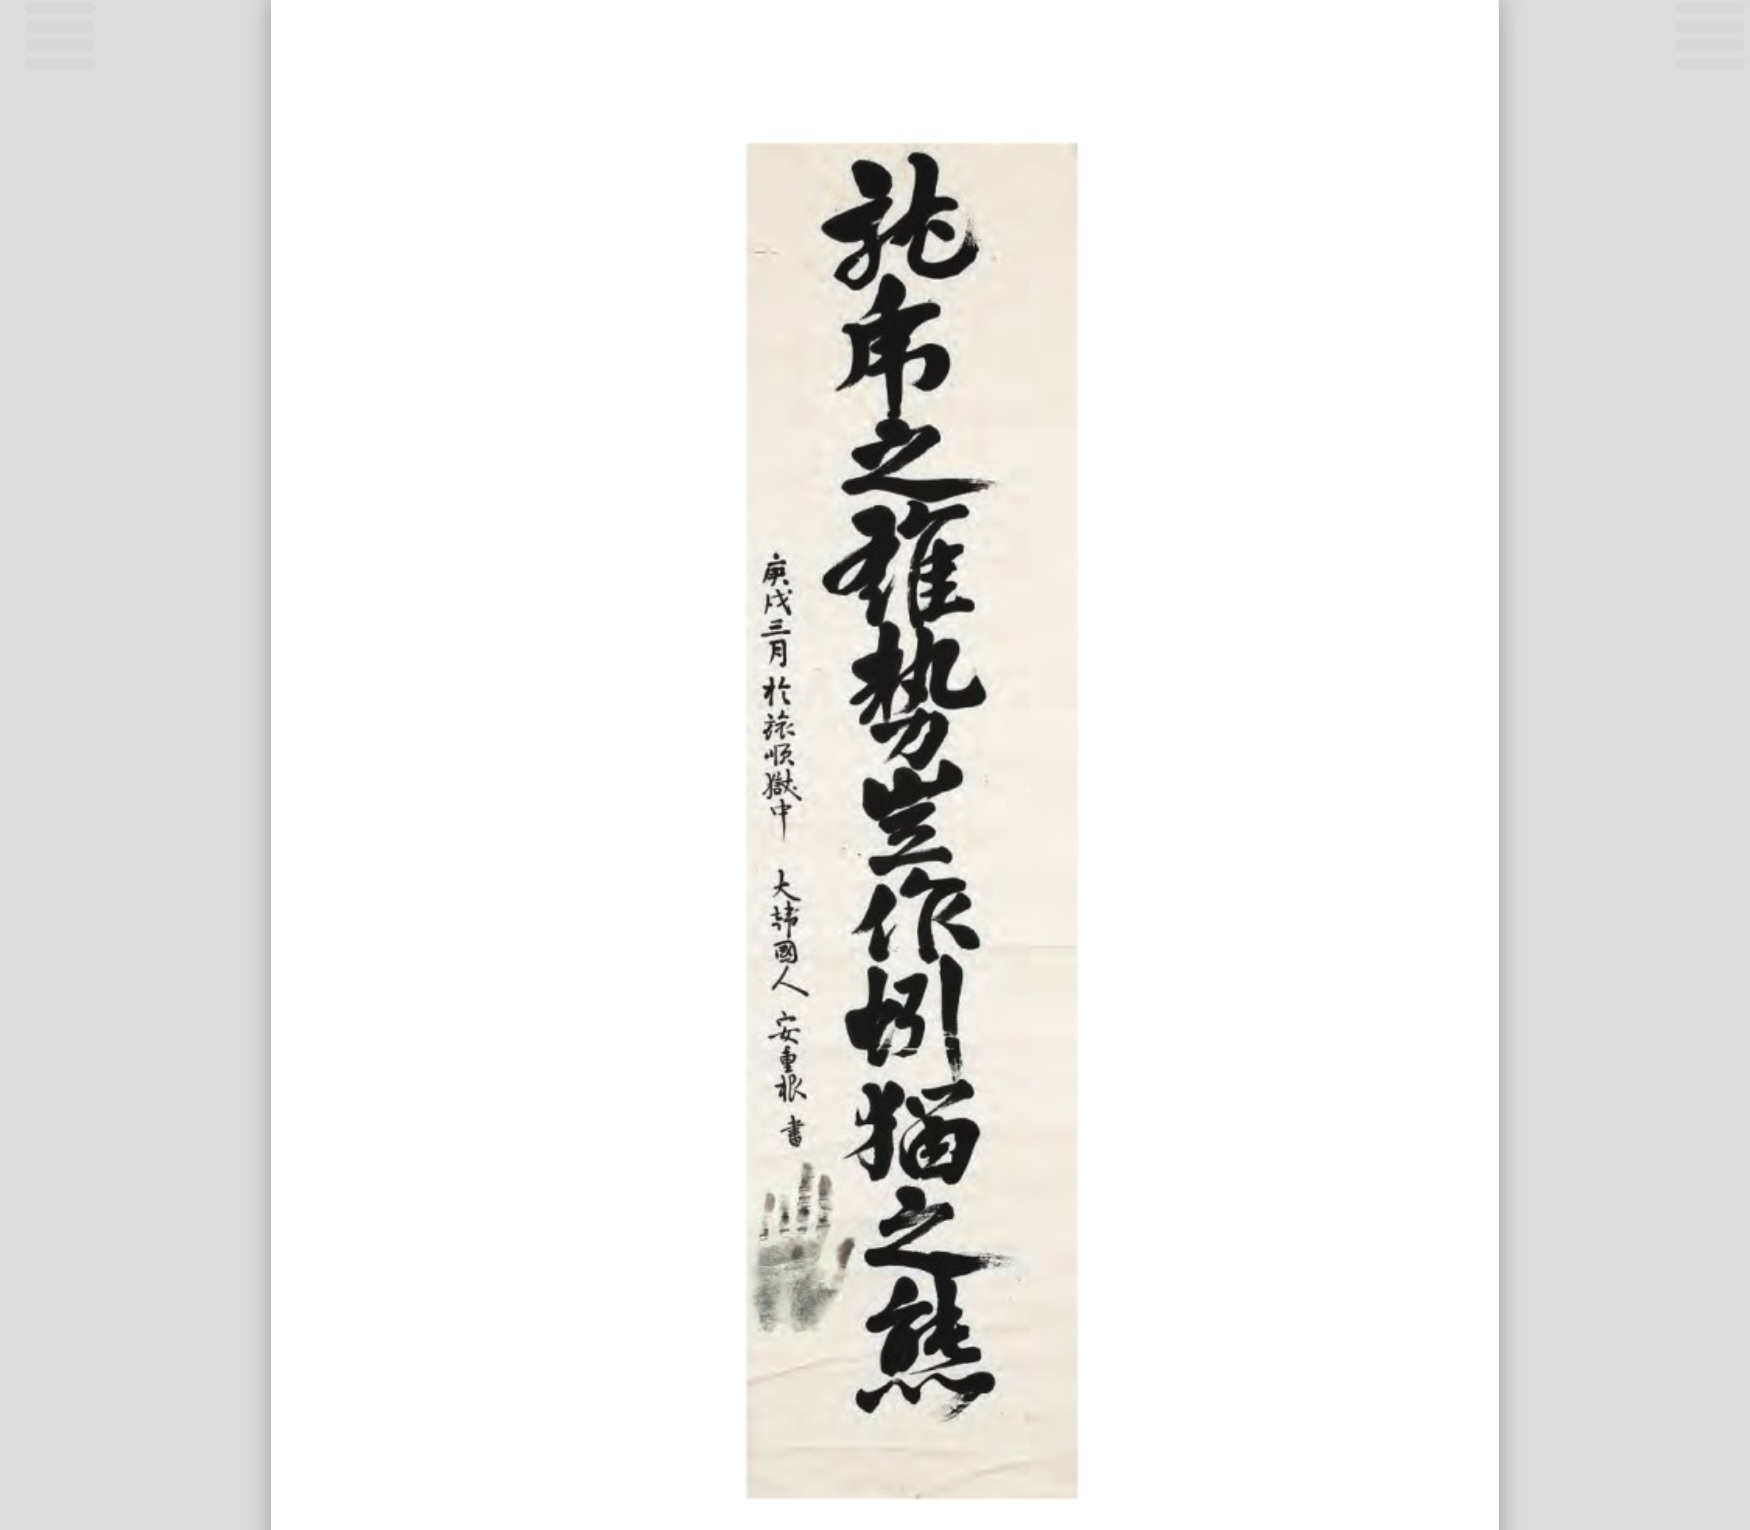 龍乕之雄勢豈作蚓猫之態
庚戌三月 於旅順獄中 大韓國人 安重根 書